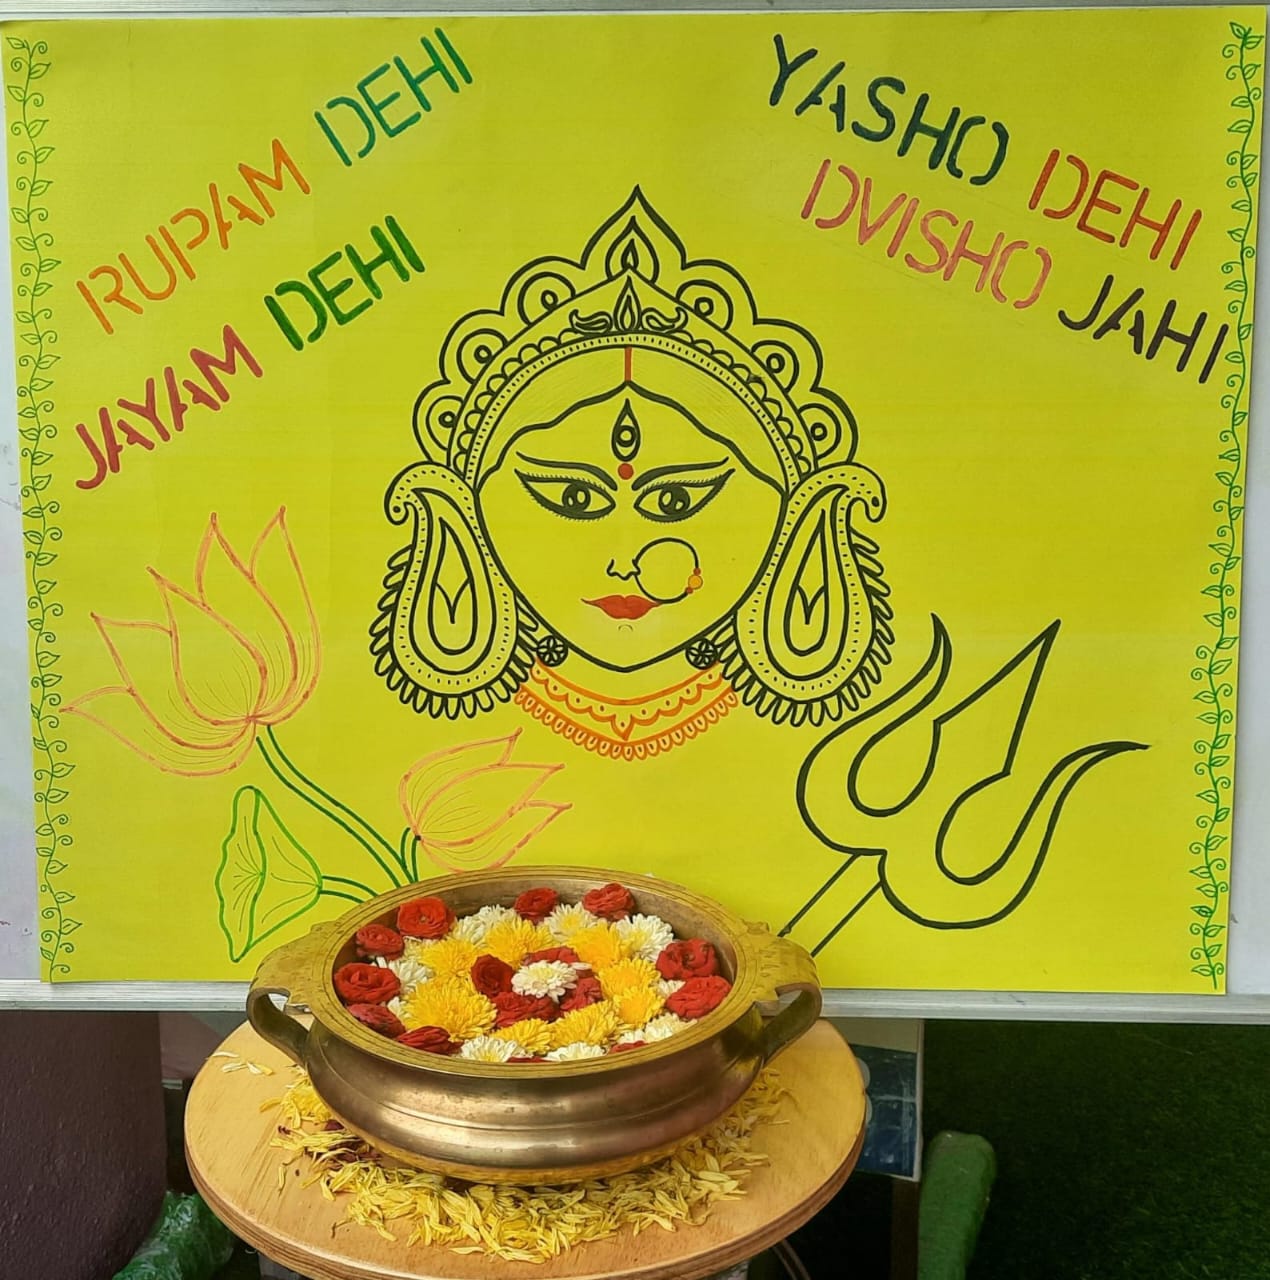 RUPAM DEHI
JAYAM DEHI
YASHO DEHI
DVISHO JAHI